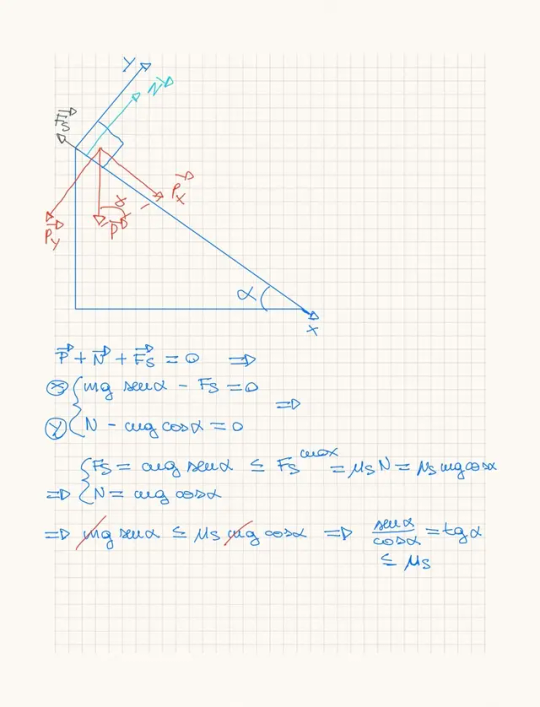 y
N
Fs
Px
α
P
Py
α
x
P + N + Fs = 0 ⇒
ⓧ { mg senα − Fs = 0
⇒
ⓨ { N − mg cosα = 0
{ Fs = mg senα ≤ Fs max = μs N = μs mg cosα
⇒ { N = mg cosα
⇒ mg senα ≤ μs mg cosα ⇒ senα/cosα = tgα
≤ μs